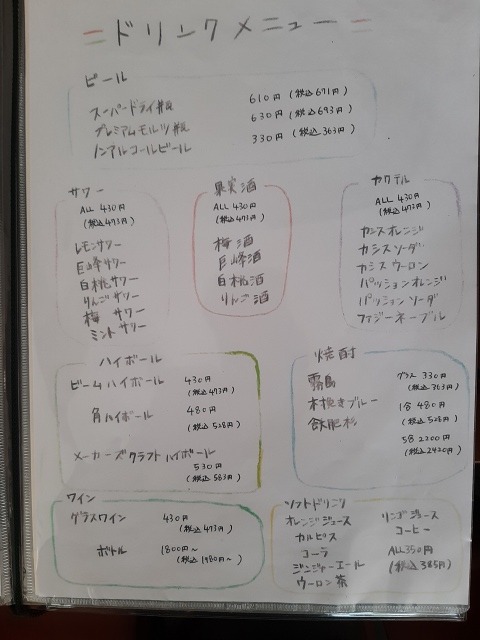 ＝ドリンクメニュー＝
ビール
スーパードライ瓶 610円 (税込671円)
プレミアムモルツ瓶 630円 (税込693円)
ノンアルコールビール 330円 (税込363円)
サワー
ALL 430円
(税込473円)
レモンサワー
巨峰サワー
白桃サワー
りんごサワー
梅 サワー
ミントサワー
果実酒
ALL 430円
(税込473円)
梅酒
巨峰酒
白桃酒
りんご酒
カクテル
ALL 430円
(税込473円)
カシスオレンジ
カシスソーダ
カシスウーロン
パッションオレンジ
パッションソーダ
ファジーネーブル
ハイボール
ビームハイボール 430円
(税込473円)
角ハイボール 480円
(税込528円)
メーカーズクラフトハイボール
530円
(税込583円)
焼酎
霧島 グラス 330円
(税込363円)
木挽きブルー 1合 480円
(税込528円)
飫肥杉
5合 2200円
(税込2420円)
ワイン
グラスワイン 430円
(税込473円)
ボトル 1800円〜
(税込1980円〜)
ソフトドリンク
オレンジジュース リンゴジュース
カルピス コーヒー
コーラ ALL350円
ジンジャーエール (税込385円)
ウーロン茶